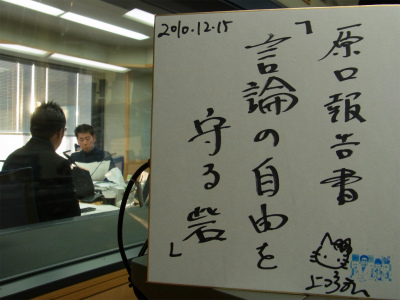 2010.12.15
「原口報告書
言論の自由を
守る砦」